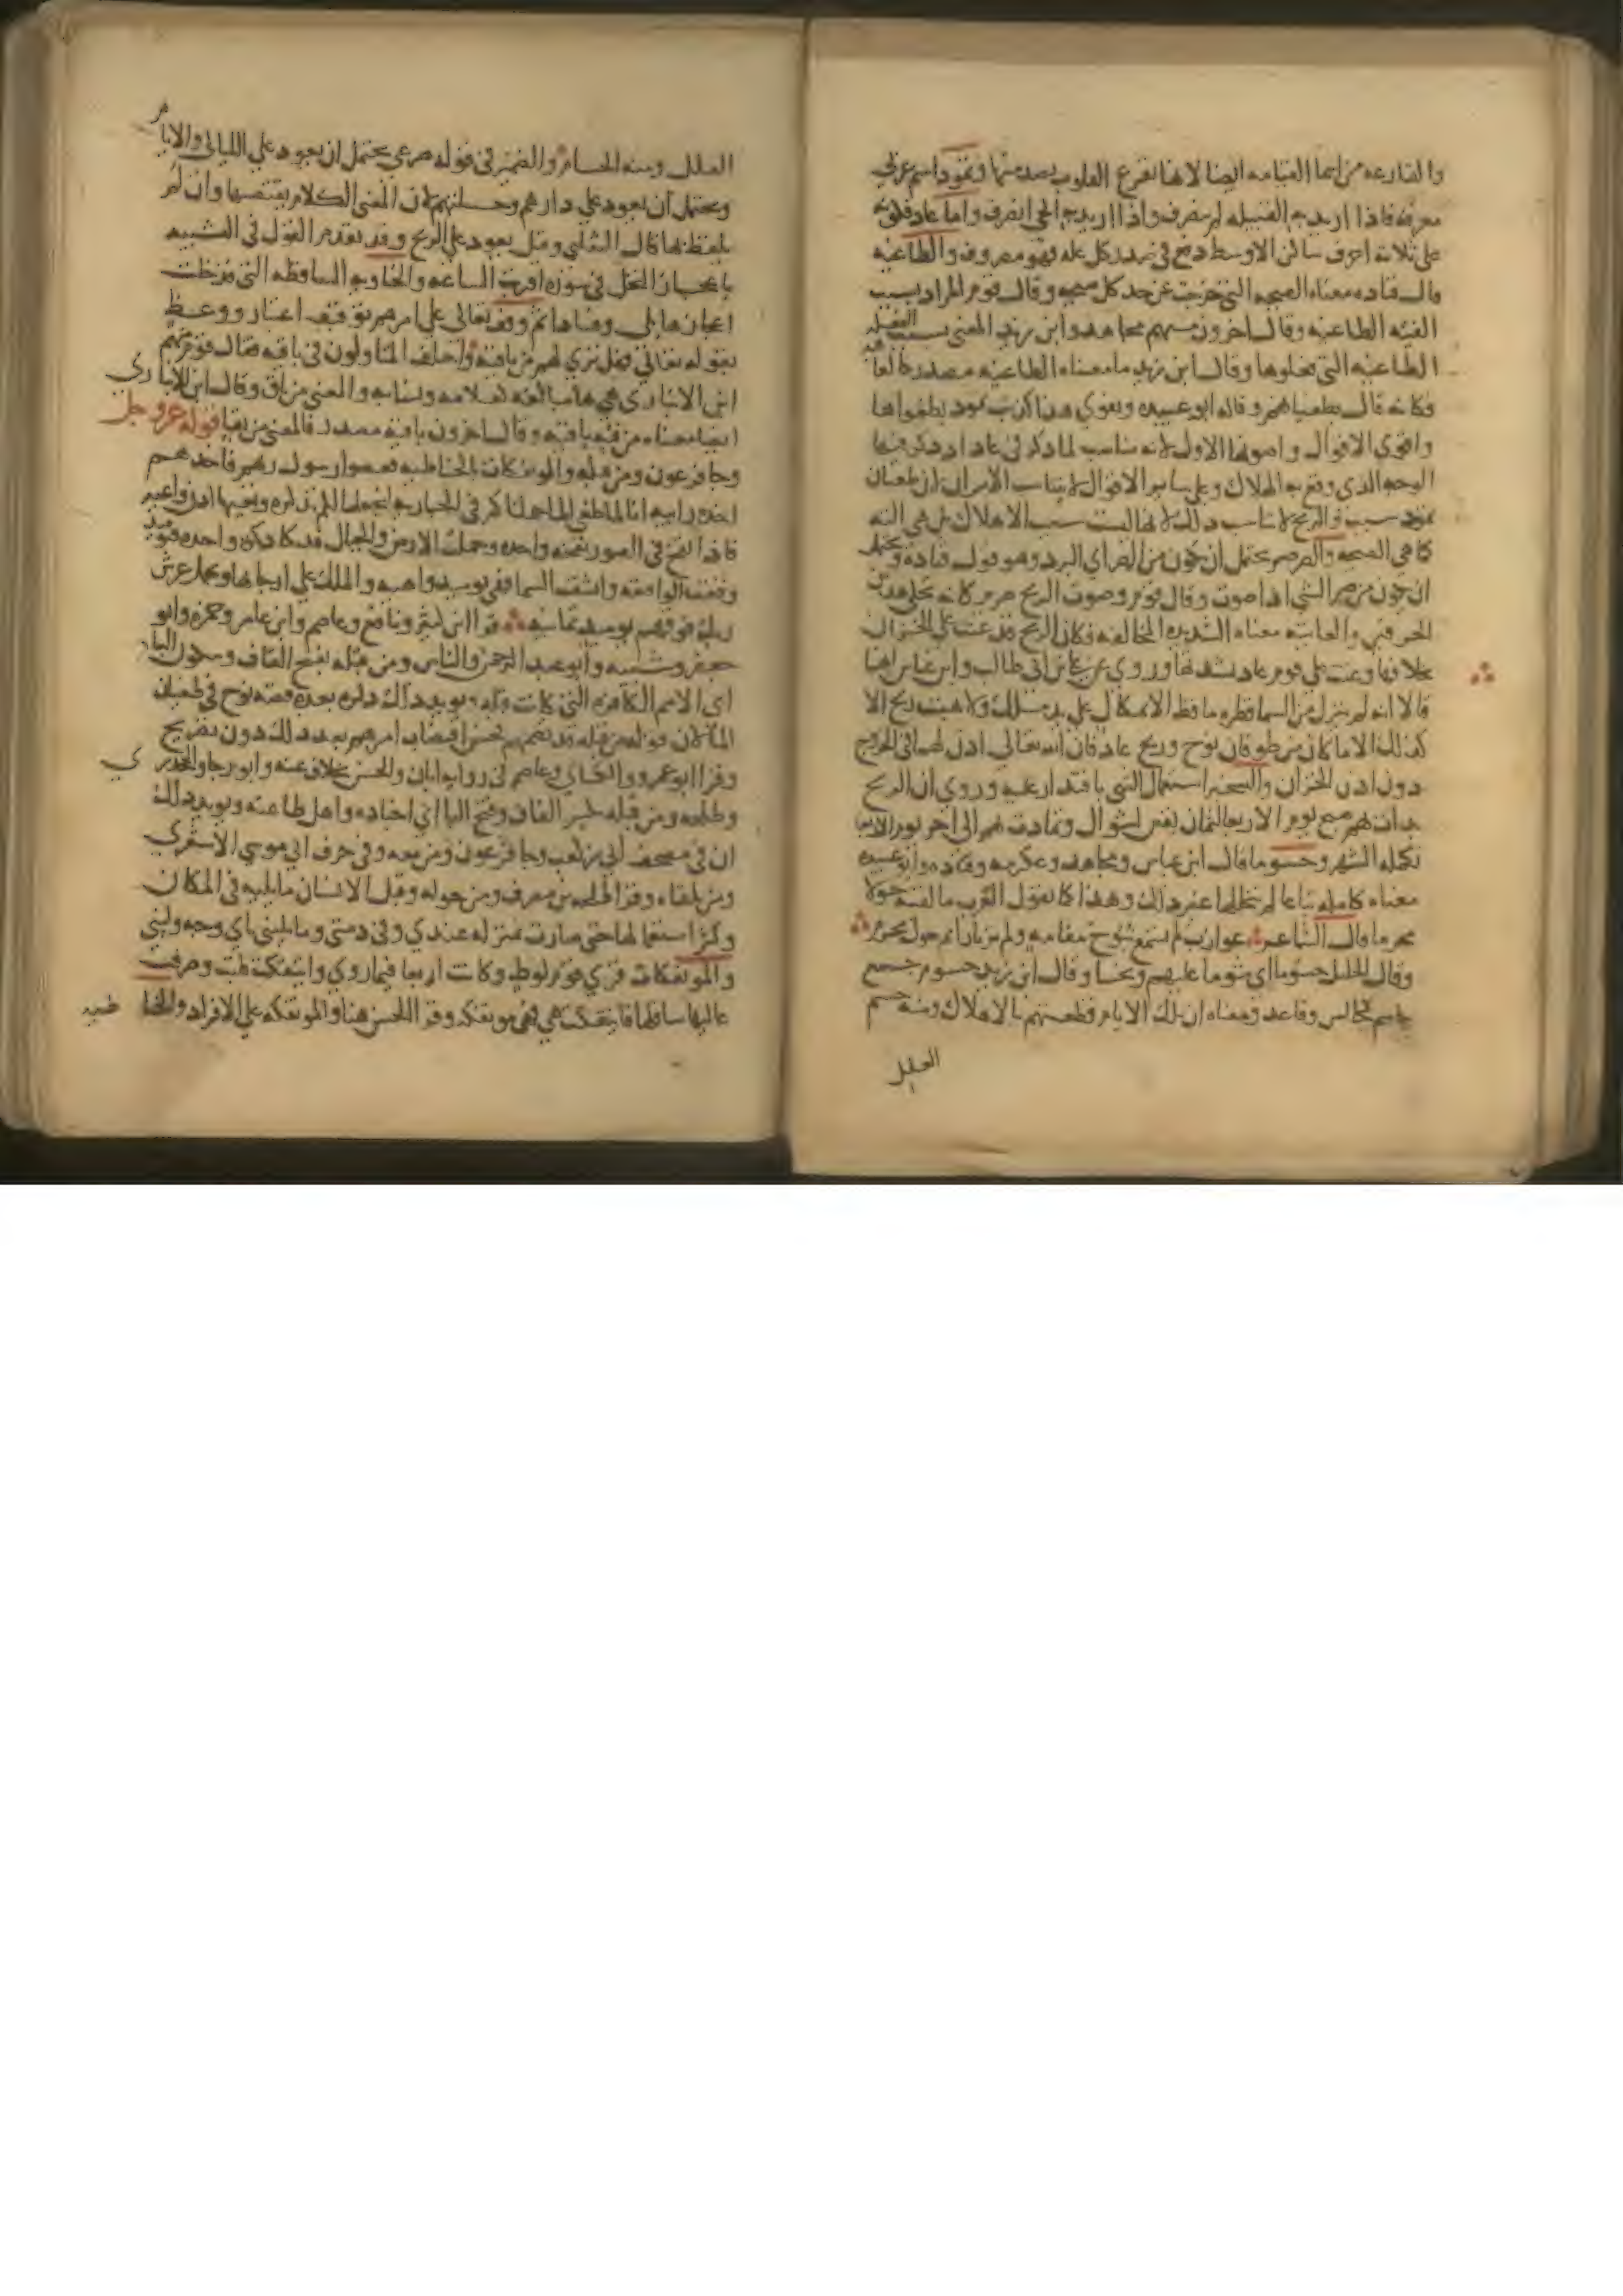 والقارعه من اسما القيامه ايضا لانها تقرع القلوب بصدمتها وثمود اسم عربي
معرفه فاذا اريد به القبيله لم ينصرف واذا اريد به الحي انصرف واما عاد فلكونه
على ثلاثه احرف ساكن الاوسط دفع في صدر كل عله فهو مصروف والطاغيه
قال قتاده معناه الصيحه التي خرجت عن حد كل صيحه وقال قوم المراد بسبب
الفئه الطاغيه وقال اخرون منهم مجاهد وابن زيد المعنى بسبب الفعله
الطاغيه التي فعلوها وقال ابن زيد ما معناه الطاغيه مصدر كالعاقبه
فكانه قال بطغيانهم وقاله ابو عبيده ويقوي هذا كذبت ثمود بطغواها
واقوى الاقوال واصوبها الاول لانه مناسب لما ذكر في عاد اذ ذكر فيها
الوجه الذي وقع به الهلاك وعلى ساير الاقوال لا يتناسب الامران لان طغيان
ثمود سبب والريح لا يناسب ذلك لانها ليست سبب الاهلاك بل هي اله
كما هي الصيحه والصرصر يحتمل ان يكون من الصر اي البرد وهو قول قتاده ويحتمل
ان يكون من صر الشي اذا صوت وقال قوم وصوت الريح صرصر كانه يحكي هذين
الحرفين والعاتيه معناه الشديده المخالفه فكان الريح قد عتت على الخزان
بخلافها وعتت على قوم عاد بشدتها وروي عن علي بن ابي طالب وابن عباس انهما
قالا انه لم ينزل من السما قطره ما قط الا بمكيال على يد ملك ولا هبت ريح الا
كذلك الا ما كان من طوفان نوح وريح عاد فان الله تعالى اذن لهما في الخروج
دون اذن الخزان والتسخير استعمال الشي باقتدار عليه وروي ان الريح
بدات بهم صبح يوم الاربعا لثمان بقين لشوال وتمادت بهم الى اخر يوم الاربعا
تكمله الشهر وحسوما قال ابن عباس ومجاهد وعكرمه وقتاده وابو عبيده
معناه كامله تباعا لم يتخللها غير ذلك وهذا كما تقول العرب ما لقيته حولا
محرما قال الشاعر عوازب لم تسمع نبوح مقامه ولم تر نارا تم حول مجرم
وقال الخليل حسوما اي شوما عليهم ونحسا وقال ابن زيد حسوم جمع
حاسم كجالس وقاعد ومعناه ان تلك الايام قطعتهم بالاهلاك ومنه حسم
العلل
العلل ومنه الحسام والضمير في قوله صرعى يحتمل ان يعود على الليالي والايام
ويحتمل ان يعود على دارهم وحلتهم لان المعنى الكلام يقتضيها وان لم
يلفظ بها قال الثعلبي وقيل يعود على الريح وقد تقدم القول في التشبيه
باعجاز النخل في سوره اقتربت الساعه والخاويه الساقطه التي قد خلت
اعجازها بلى وفسادا ثم وقف تعالى على امرهم توقيف اعتبار ووعظ
بقوله تعالى فهل ترى لهم من باقيه واختلف المتاولون في باقيه فقال قوم منهم
ابن الانباري هي هاء مبالغه كعلامه ونسابه والمعنى من باق وقال ابن الانباري
ايضا معناه من فئه باقيه وقال اخرون باقيه مصدر فالمعنى من بقيا قوله عز وجل
وجا فرعون ومن قبله والموتفكات بالخاطيه فعصوا رسول ربهم فاخذهم
اخذه رابيه انا لما طغى الما حملناكم في الجاريه لنجعلها لكم تذكره وتعيها اذن واعيه
فاذا نفخ في الصور نفخه واحده وحملت الارض والجبال فدكتا دكه واحده فيوميذ
وقعت الواقعه وانشقت السما فهي يوميذ واهيه والملك على ارجايها ويحمل عرش
ربك فوقهم يوميذ ثمانيه قرا ابن كثير ونافع وعاصم وابن عامر وحمزه وابو
جعفر وشيبه وابو عبد الرحمن والناس ومن قبله بفتح القاف وسكون الباء
اي الامم الكافره التي كانت قبله ويويد ذلك ذكره بعده قصه نوح في طغيان
الما لان قوله من قبله قد تضمنهم فحسن اقتضاب امرهم بعد ذلك دون تصريح
وقرا ابو عمرو والكساي وعاصم في روايه ابان والحسن بخلاف عنه وابو رجا والجحدري
وطلحه ومن قبله بكسر القاف وفتح البا اي اجناده واهل طاعته ويويد ذلك
ان في مصحف ابي بن كعب وجا فرعون ومن معه وفي حرف ابي موسى الاشعري
ومن تلقاه وقرا طلحه بن مصرف ومن حوله وقبل الانسان ما يليه في المكان
وكثر استعمالها حتى صارت بمنزله عندي وفي ذمتي وما يليني باي وجه وليني
والموتفكات قرى قوم لوط وكانت اربعا فيما روي وايتفكت قلبت وصرفت
عاليها سافلها فايتفكت هي فهي موتفكه وقرا الحسن هنا والموتفكه على الافراد والخاطيه